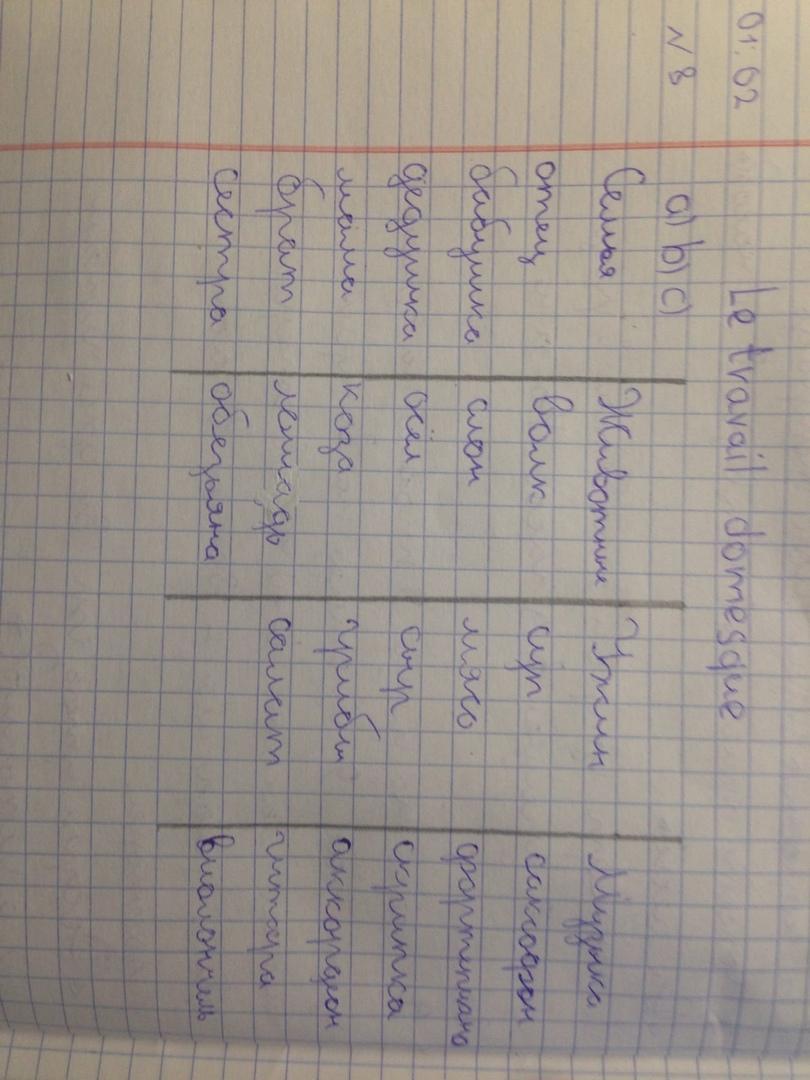 01.02
Le travail domesque
N8 a) b) c)
Семья Животные Ужин Музыка
отец волк суп саксофон
бабушка слон мясо фортепиано
дедушка осёл сыр скрипка
мама коза грибы аккордеон
брат лошадь салат гитара
сестра обезьяна виолончель